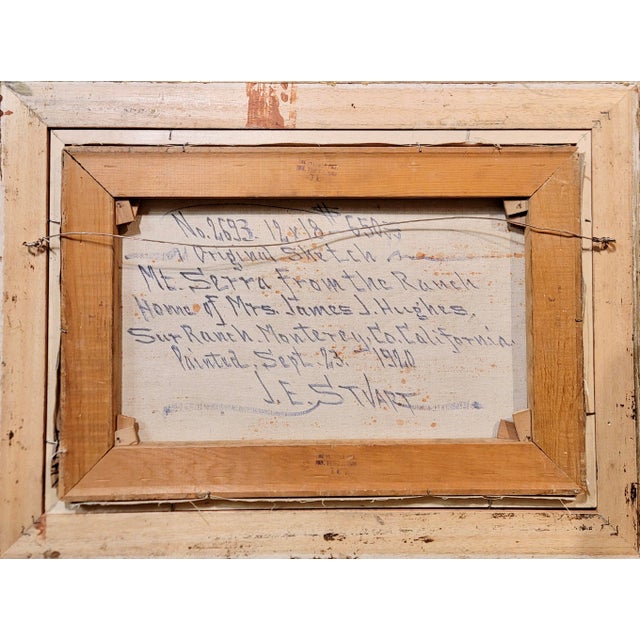 No. 2693. 12 x 18
Original Sketch
Mt. Serra From the Ranch
Home of Mrs. James J. Hughes,
Sur Ranch. Monterey, Co. California.
Painted, Sept. 23. 1920
J. E. STUART